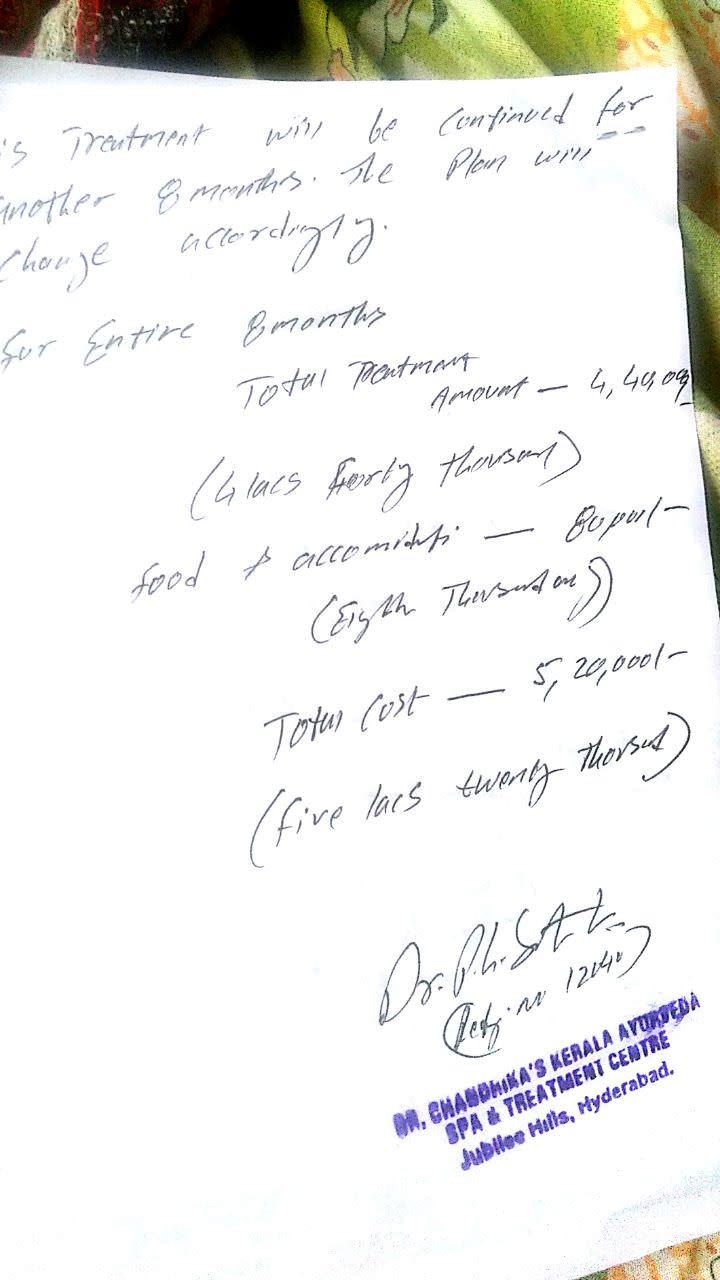 is Treatment will be continued for
another 8 months. The Plan will
Change accordingly.
for Entire 8 months
Total Treatment
Amount — 4,40,00
(4 lacs forty thousand)
food & accomidati —
(Eighth Thousand
Total Cost — 5,20,000/-
(five lacs twenty thousand)
Dr. P.L.
(Regj. no
DR. CHANDHIKA'S KERALA AYURVEDA
SPA & TREATMENT CENTRE
Jubilee Hills, Hyderabad.